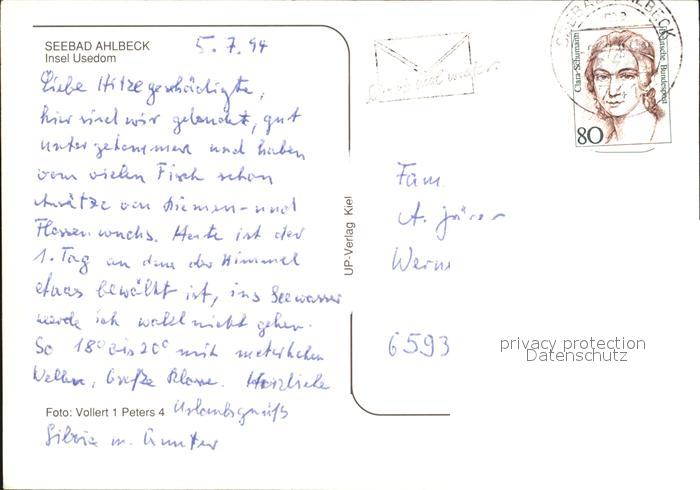 SEEBAD AHLBECK
Insel Usedom
5.7.94
Liebe Hitzegeschädigte,
hier sind wir gelandet, gut
untergekommen und haben
vom vielen Fisch schon
Ansätze von Kiemen- und
Flossenwuchs. Heute ist der
1. Tag an dem der Himmel
etwas bewölkt ist, ins Seewasser
werde ich wohl nicht gehen.
So 18° bis 20° mit meterhohen
Wellen, Große Klasse. Herzliche
Urlaubsgrüße
Foto: Vollert 1 Peters 4
Silvia u. Gunter
UP-Verlag Kiel
SEEBAD AHLBECK
Clara-Schumann
Deutsche Bundespost
80
Fam.
A.
Werne
6593
privacy protection
Datenschutz